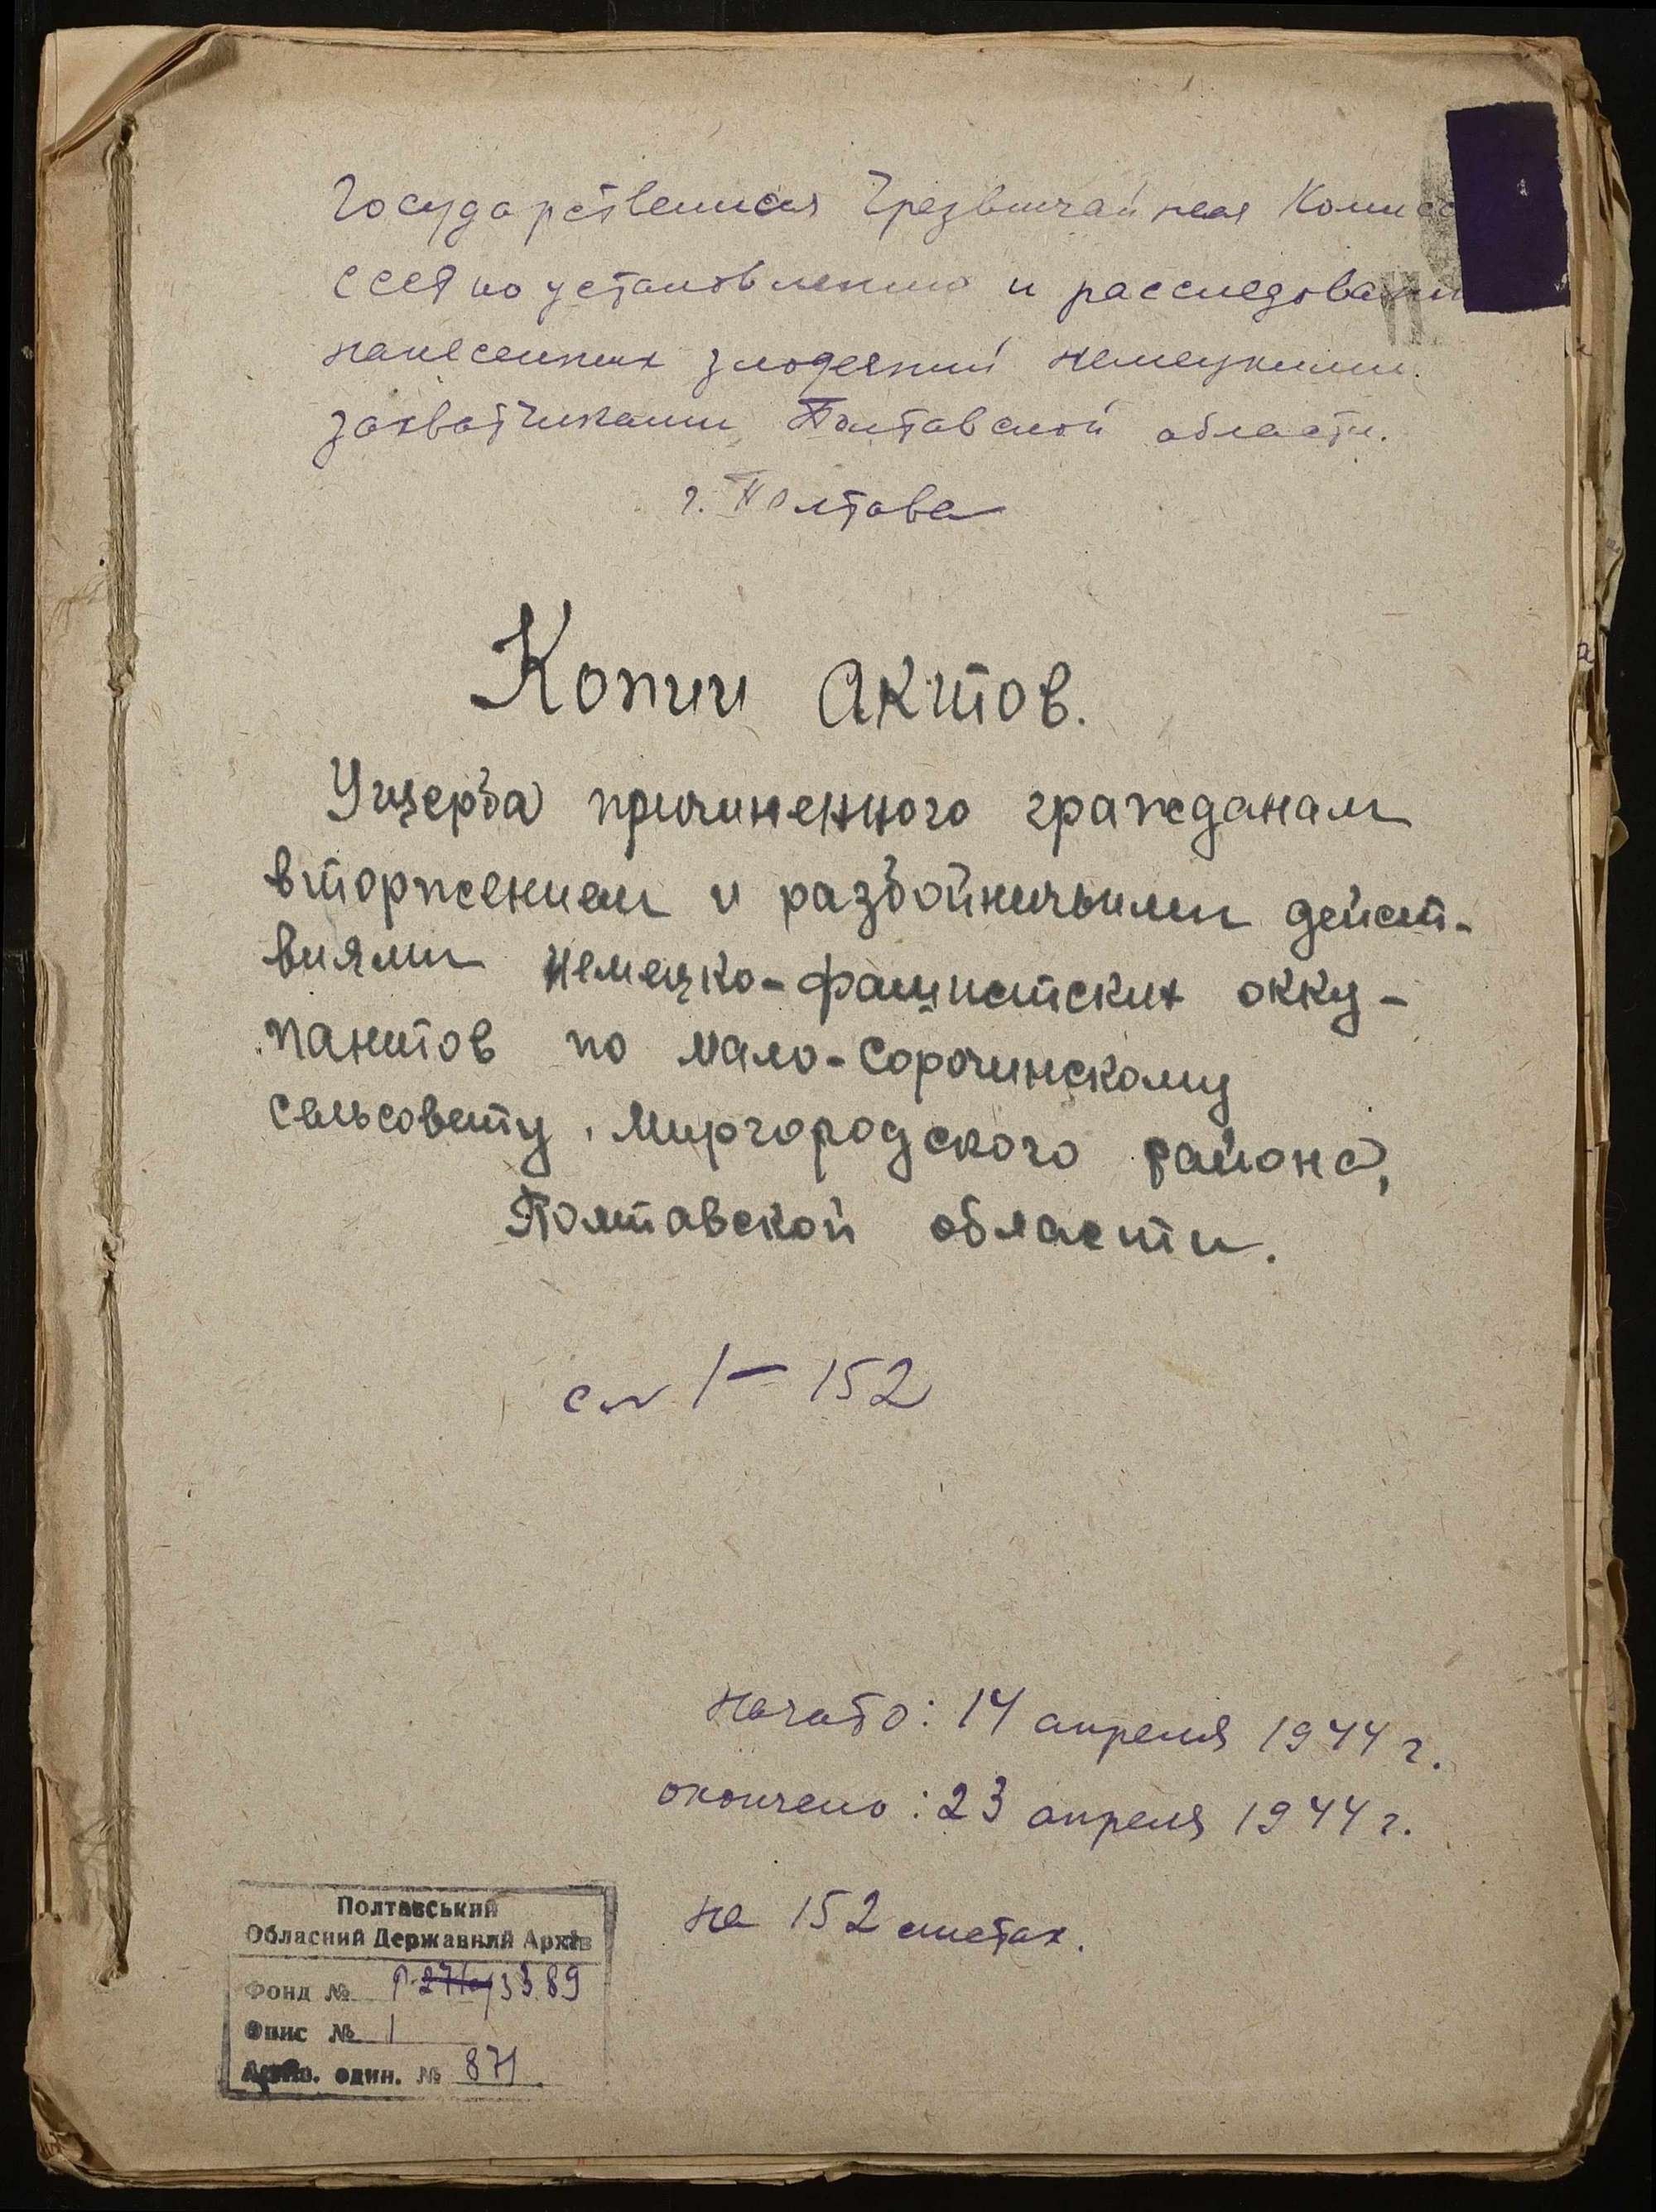 Государственная Чрезвычайная Комисс
ссея по установлению и расследовани
нанесенных злодеяний немецкими
захватчиками Полтавской области.
г. Полтава
Копии Актов.
Ущерба причиненного гражданам
вторжением и разбойничьими дейст-
виями немецко-фашистских окку-
пантов по Мало-Сорочинскому
сельсовету, Миргородского района,
Полтавской области.
1 - 152
начато: 14 апреля 1944 г.
окончено: 23 апреля 1944 г.
на 152 листах.
Полтавський
Обласний Державний Архів
Фонд № 3389
Опис № 1
один. № 871